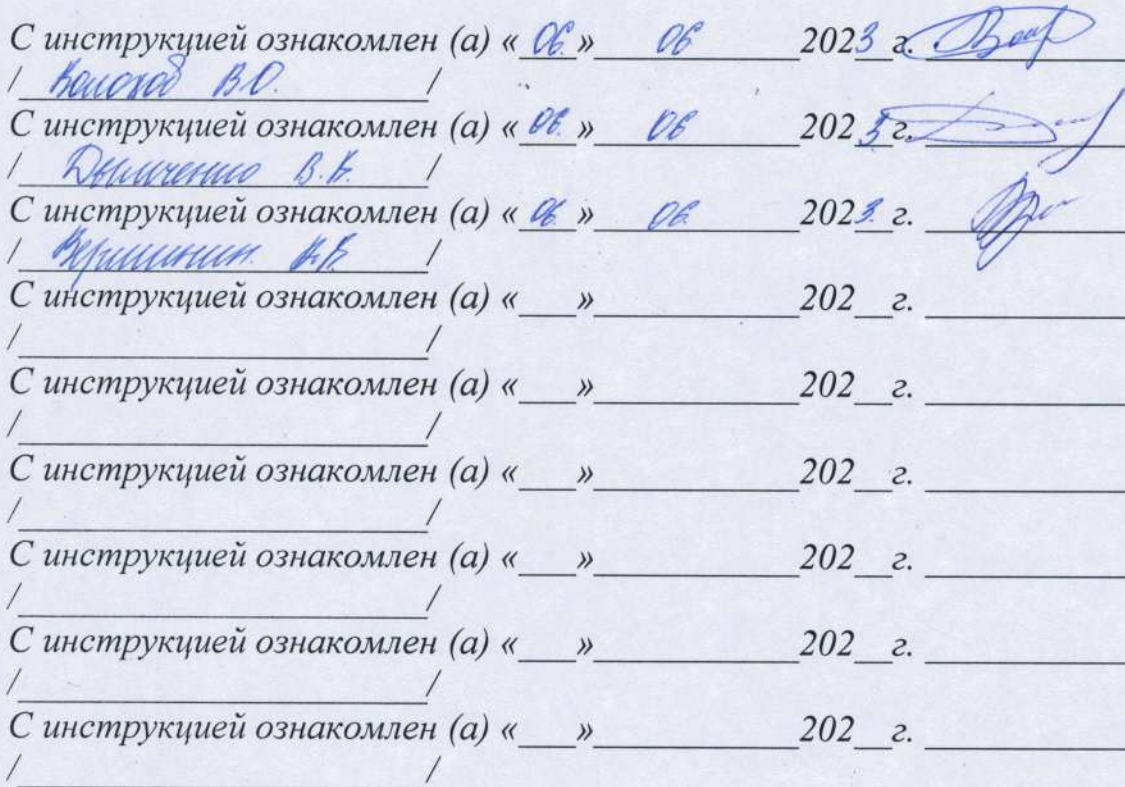 С инструкцией ознакомлен (а) « 06. » 06 2023 г.
/ Волохов В.О. /
С инструкцией ознакомлен (а) « 06. » 06 2023. г.
/ Дымченко В.В. /
С инструкцией ознакомлен (а) « 06. » 06. 2023. г.
/ Вершинин /
С инструкцией ознакомлен (а) «___»__________202__г. __________
/____________________/
С инструкцией ознакомлен (а) «___»__________202__г. __________
/____________________/
С инструкцией ознакомлен (а) «___»__________202__г. __________
/____________________/
С инструкцией ознакомлен (а) «___»__________202__г. __________
/____________________/
С инструкцией ознакомлен (а) «___»__________202__г. __________
/____________________/
С инструкцией ознакомлен (а) «___»__________202__г. __________
/____________________/